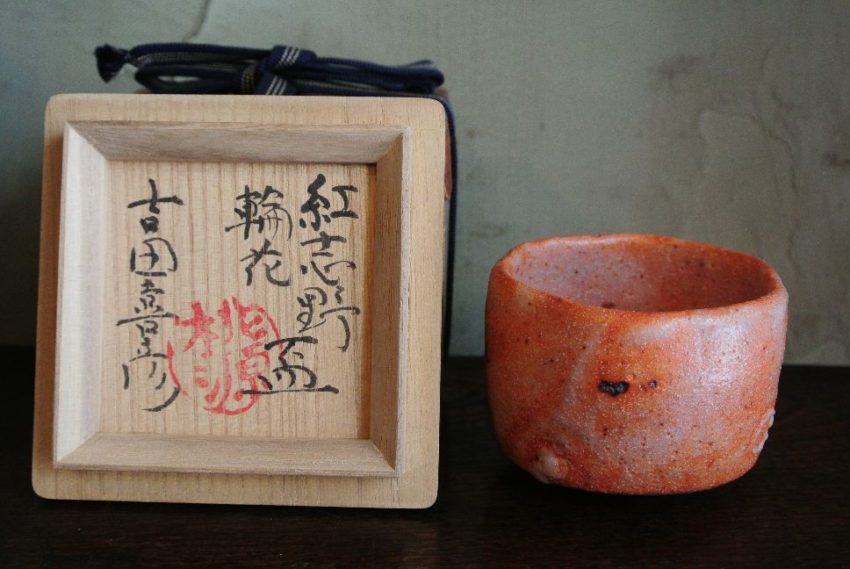 紅志野
輪花 盃
吉田喜彦